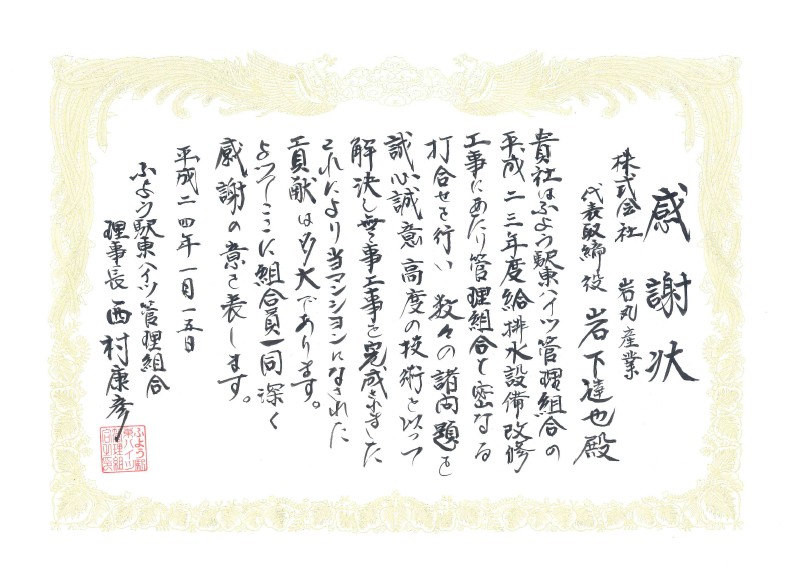 感謝状
株式会社 岩丸産業
代表取締役 岩下達也殿
貴社はふよう駅東ハイツ管理組合の
平成二三年度給排水設備改修
工事にあたり管理組合と密なる
打合せを行い数々の諸問題を
誠心誠意高度の技術を以って
解決し無事工事を完成されました
これにより当マンションになされた
貢献は多大であります。
よってここに組合員一同深く
感謝の意を表します。
平成二四年一月一五日
ふよう駅東ハイツ管理組合
理事長 西村康彦